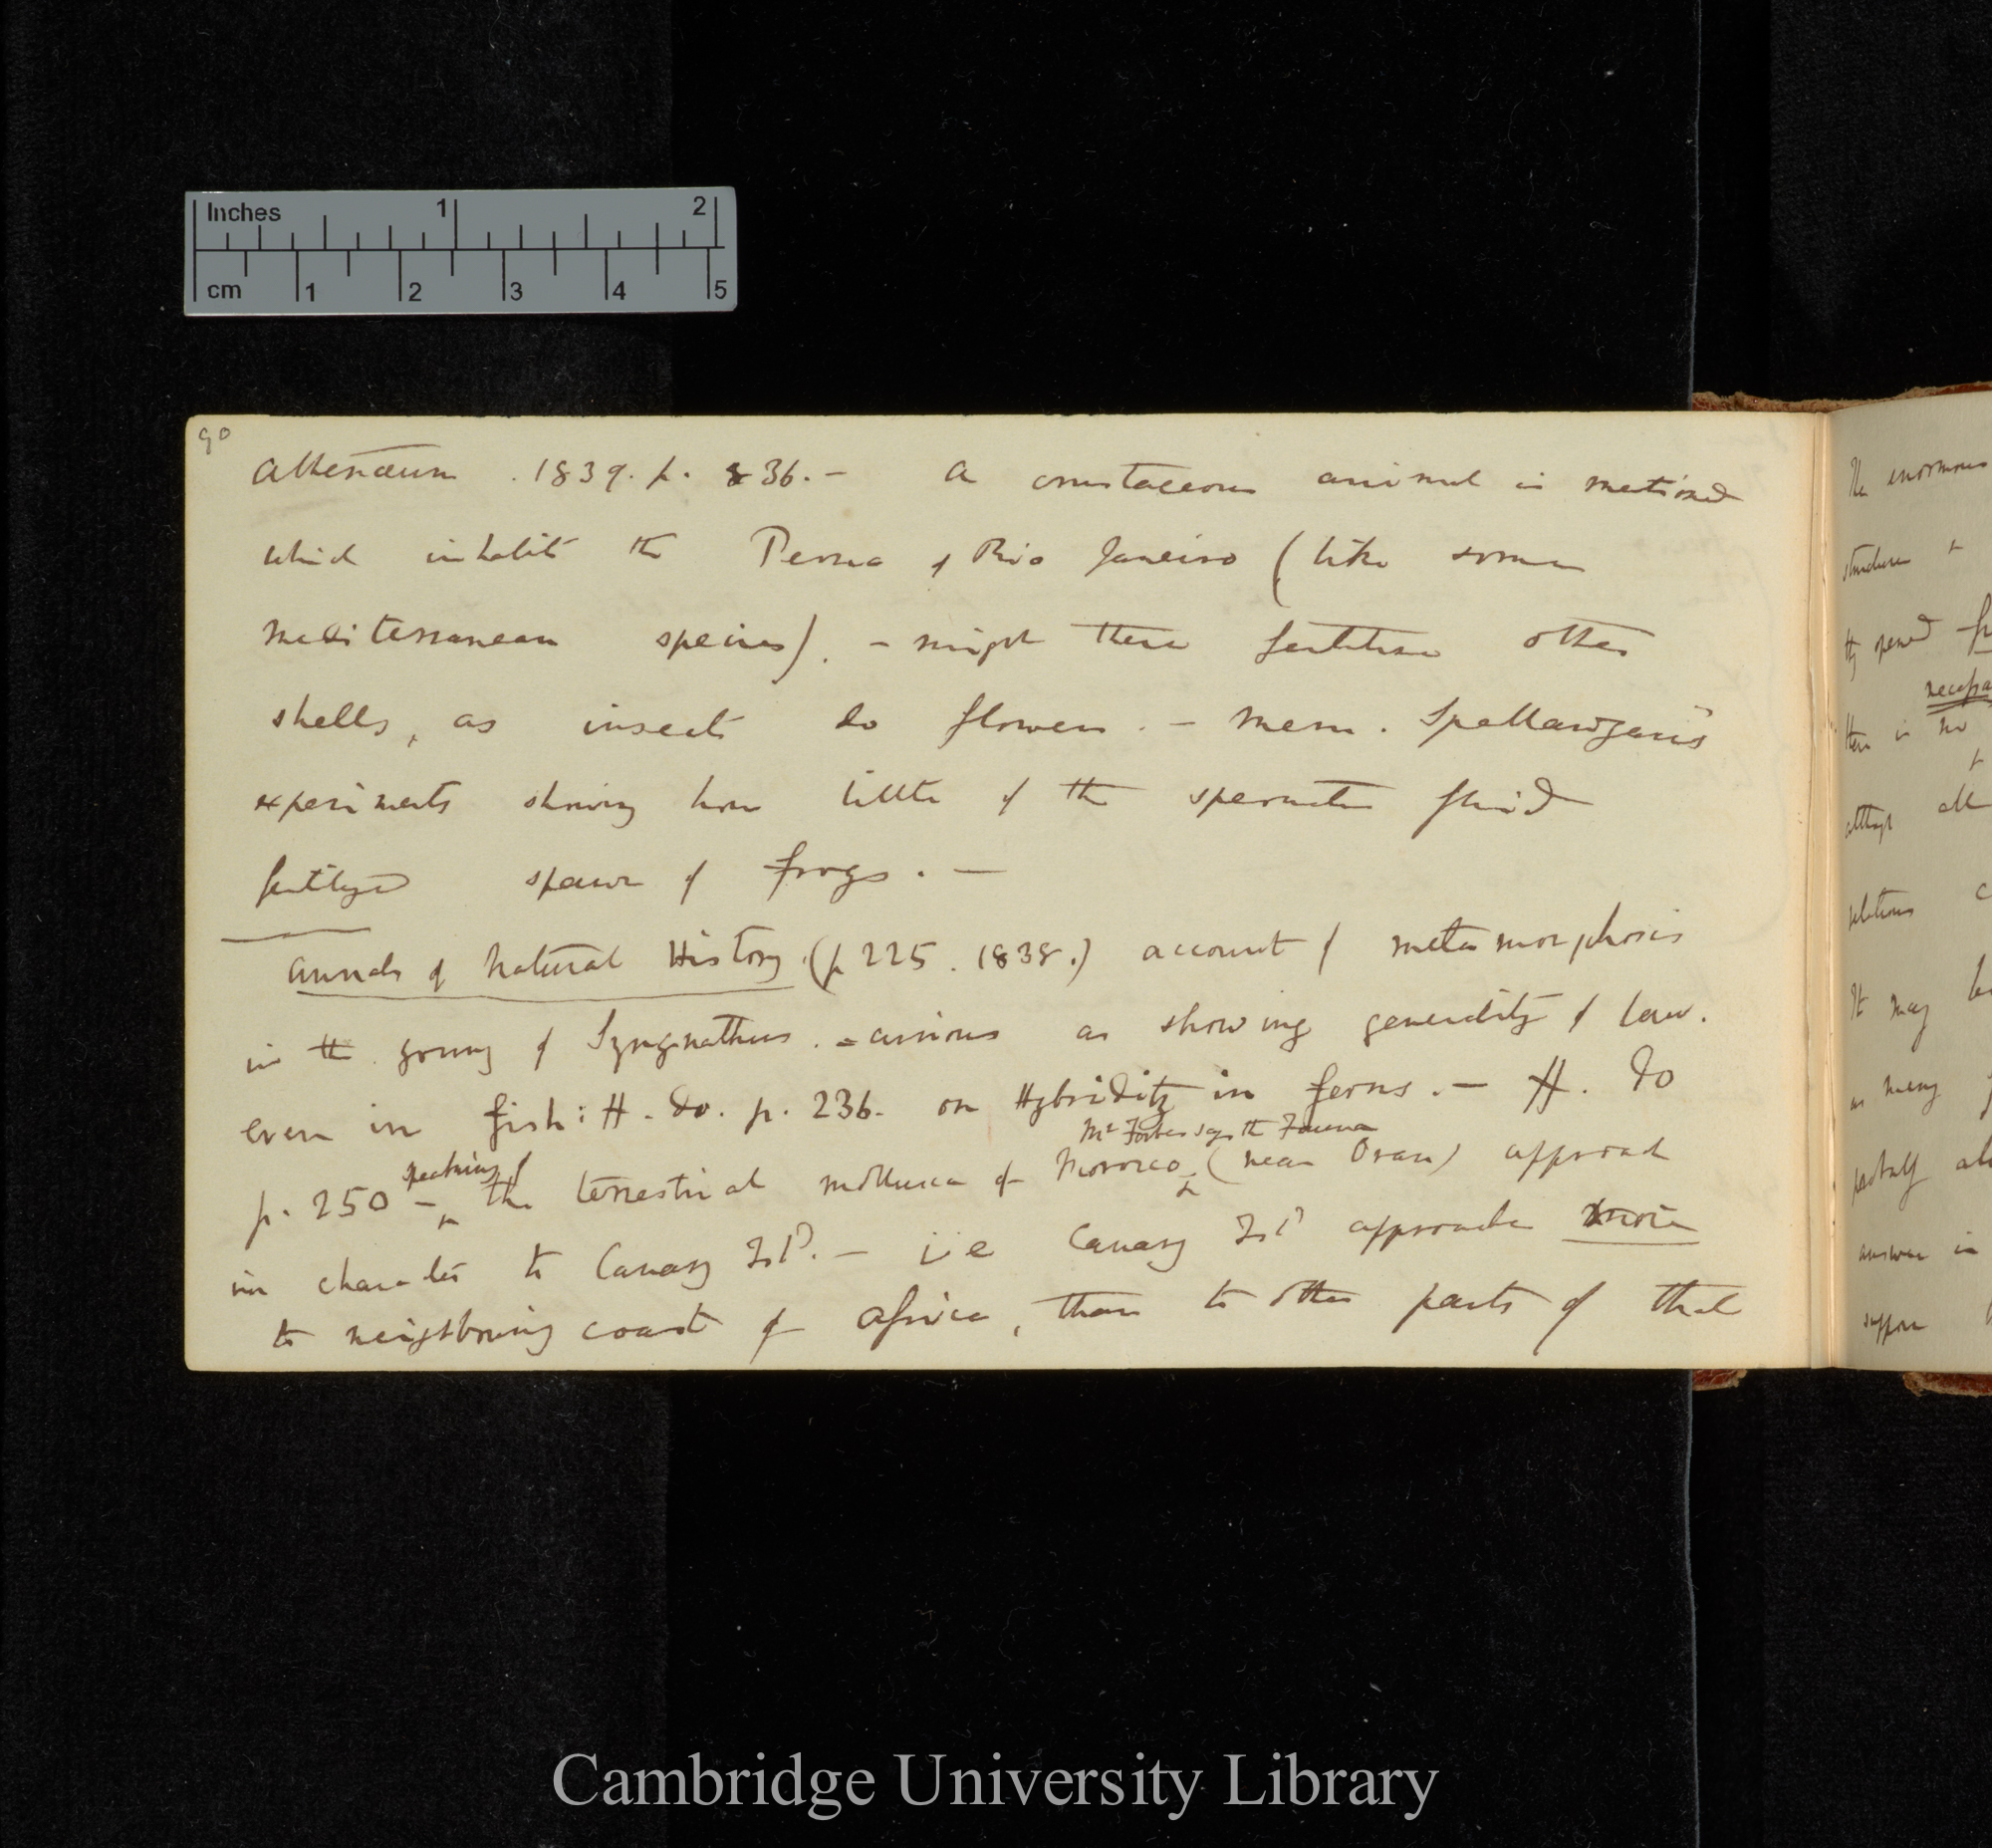 Inches 1 2
cm 1 2 3 4 5
90
Athenæum . 1839. p. 836. — A crustaceous animal is mentioned
which inhabits the Perna of Rio Janeiro (like some
Mediterranean species). — might these fertilise other
shells, as insects do flowers. — Mem. Spallanzani's
experiments showing how little of the spermatic fluid
fertilized spawn of frogs. —
Annals of Natural History (p 225 . 1838.) account of metamorphosis
in the young of Syngnathus. — curious as showing generality of law.
even in fish: H. do. p. 236. on Hybridity in ferns. — H. do
Mr Forbes says the Fauna
speaking of
p. 250 — the terrestrial mollusca of Morocco (near Oran) approach
in character to Canary Isd. — i.e Canary Isd approach more
to neighbouring coast of Africa, than to other parts of that
The enormous
structure +
they opened
necessa
there is no
+
although all
relations c
It may be
as many
probably al
answer in
suppose
Cambridge University Library